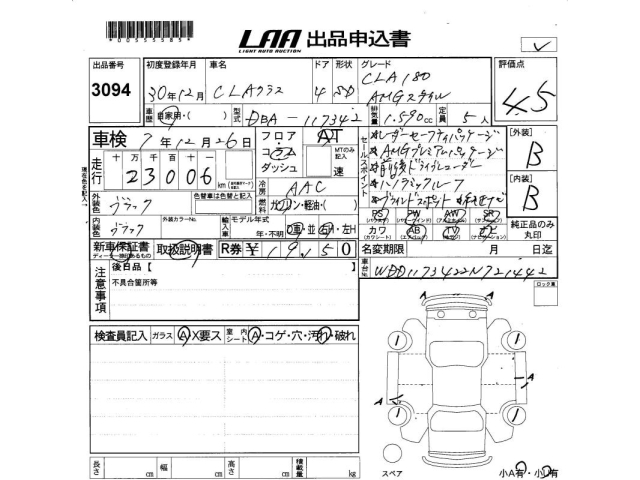 *00555585*
LAA 出品申込書
LIGHT AUTO AUCTION
出品番号 初度登録年月 車名 ドア 形状 グレード 評価点
3094 30年12月 CLAクラス 4 SD CLA180 AMGスタイル 4.5
車歴 自家用・( ) 型式 DBA-117342 排気量 1.590cc 定員 5人
車検 7年12月26日 フロア・コラム・ダッシュ AT セールスポイント *レーダーセーフティパッケージ 【外装】
MTのみ記入 速 *AMGプレミアムパッケージ B
走行 十万千百十 23006 km 冷房 AAC *前後ドライブレコーダー 【内装】
色替車は色替と記入 *パノラミックルーフ B
外装色 ブラック 燃料 ガソリン・軽油・( ) *ブラインドスポット
内装色 ブラック 外装カラーNo. 輸入車 モデル年式 年・不明 D車・並 右H・左H
PS PW AW SR
カワ AB TV ナビ 純正品のみ丸印
新車保証書 取扱説明書 R券 ¥ 19,150 名変期限 月 日迄
後日品【 車台No. WDD1173422N721442
注意事項 不具合箇所等 ロック番
検査員記入 ガラス A X要ス 室内シート A・コゲ・穴・汚れ・破れ
A
A
長さ cm 幅 cm 高さ cm 積載量 kg
スペア 小A有・小U有